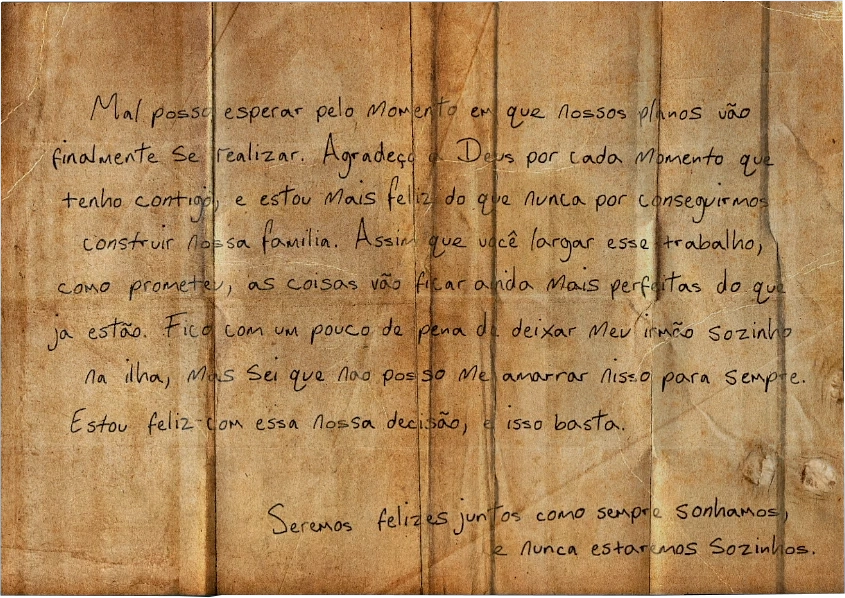 Mal posso esperar pelo momento em que nossos planos vão
finalmente se realizar. Agradeço a Deus por cada momento que
tenho contigo, e estou mais feliz do que nunca por conseguirmos
construir nossa família. Assim que você largar esse trabalho,
como prometeu, as coisas vão ficar ainda mais perfeitas do que
ja estão. Fico com um pouco de pena de deixar meu irmão sozinho
na ilha, mas sei que nao posso me amarrar nisso para sempre.
Estou feliz com essa nossa decisão, e isso basta.
Seremos felizes juntos como sempre sonhamos,
e nunca estaremos sozinhos.